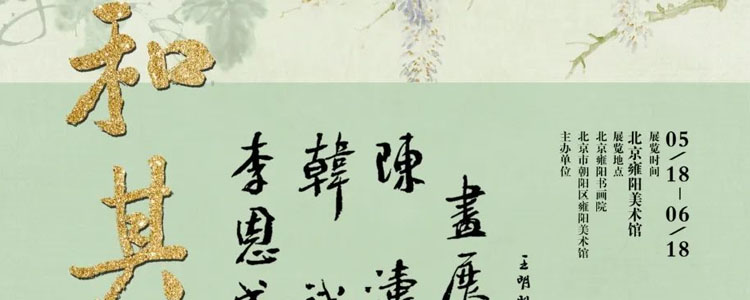 05/18—06/18
展览时间
北京雍阳美术馆
展览地点
北京雍阳书画院
北京市朝阳区雍阳美术馆
主办单位
王明
畫展
陳
韓
李恩
和其